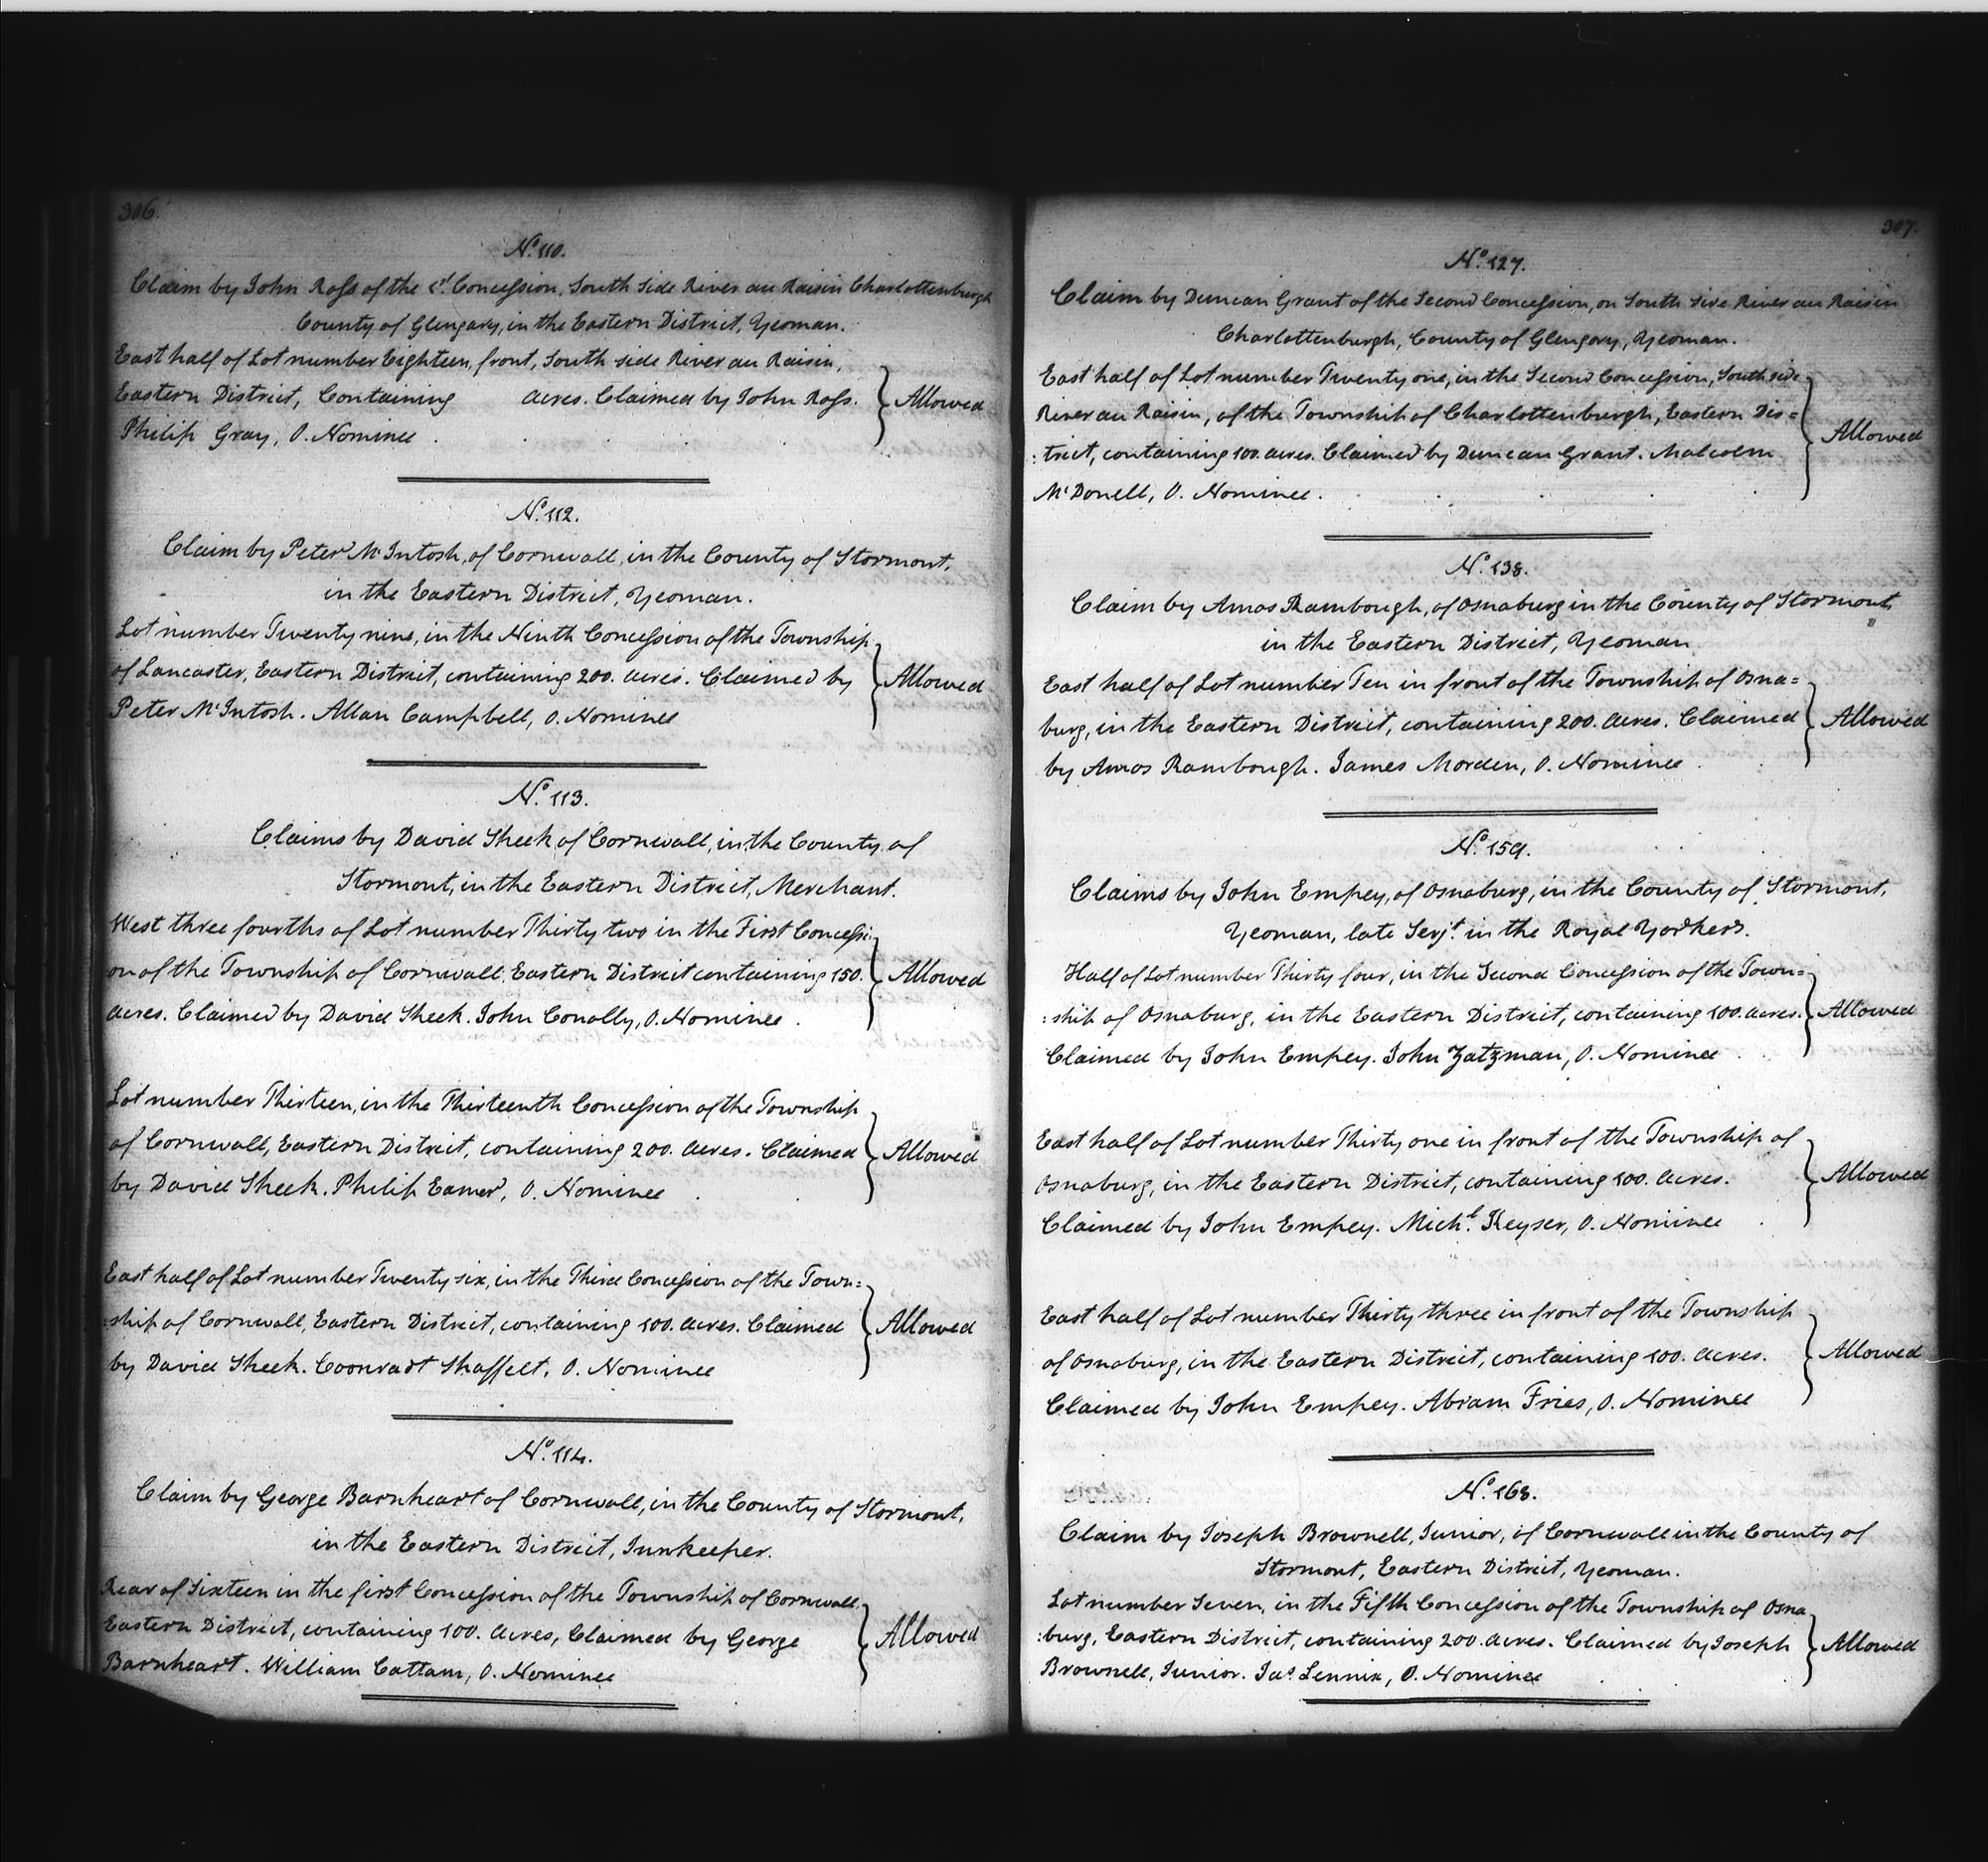 306.
No. 110.
Claim by John Ross of the 1st Concession, South Side River au Raisin Charlottenburgh
County of Glengary, in the Eastern District, Yeoman.
East half of Lot number Eighteen, front, South side River au Raisin,
Eastern District, Containing acres. Claimed by John Ross. } Allowed
Philip Gray, O. Nominee.
No. 112.
Claim by Peter McIntosh, of Cornwall, in the County of Stormont,
in the Eastern District, Yeoman.
Lot number Twenty nine, in the Ninth Concession of the Township
of Lancaster, Eastern District, containing 200. acres. Claimed by } Allowed
Peter McIntosh. Allan Campbell, O. Nominee
No. 113.
Claims by David Sheek of Cornwall, in the County of
Stormont, in the Eastern District, Merchant.
West three fourths of Lot number Thirty two in the First Concessi:
on of the Township of Cornwall Eastern District containing 150. } Allowed
acres. Claimed by David Sheek. John Conolly, O. Nominee.
Lot number Thirteen, in the Thirteenth Concession of the Township
of Cornwall, Eastern District, containing 200. acres. Claimed } Allowed
by David Sheek. Philip Eamer, O. Nominee
East half of Lot number Twenty six, in the Third Concession of the Town=
:ship of Cornwall, Eastern District, containing 100. acres. Claimed } Allowed
by David Sheek. Coonradt Shaffelt, O. Nominee
No. 114.
Claim by George Barnheart of Cornwall, in the County of Stormont,
in the Eastern District, Innkeeper.
Rear of Sixteen in the first Concession of the Township of Cornwall,
Eastern District, containing 100. acres, Claimed by George } Allowed
Barnheart. William Cattam, O. Nominee
307.
No. 127.
Claim by Duncan Grant of the Second Concession, on South Side River au Raisin
Charlottenburgh, County of Glengary, Yeoman.
East half of Lot number Twenty one, in the Second Concession, South side
River au Raisin, of the Township of Charlottenburgh, Eastern Dis=
:trict, containing 100. acres. Claimed by Duncan Grant. Malcolm } Allowed
McDonell, O. Nominee.
No. 138.
Claim by Amos Rambough, of Osnaburg in the County of Stormont,
in the Eastern District, Yeoman
East half of Lot number Ten in front of the Township of Osna=
burg, in the Eastern District, containing 200. acres. Claimed } Allowed
by Amos Rambough. James Morden, O. Nominee.
No. 159.
Claims by John Empey, of Osnaburg, in the County of Stormont,
Yeoman, late Serjt. in the Royal Yorkers.
Half of Lot number Thirty four, in the Second Concession of the Town=
:ship of Osnaburg, in the Eastern District, containing 100. acres. } Allowed
Claimed by John Empey. John Zatzman, O. Nominee
East half of Lot number Thirty one in front of the Township of
Osnaburg, in the Eastern District, containing 100. acres. } Allowed
Claimed by John Empey. Michl. Keyser, O. Nominee
East half of Lot number Thirty three in front of the Township
of Osnaburg, in the Eastern District, containing 100. acres. } Allowed
Claimed by John Empey. Abram Fries, O. Nominee
No. 168.
Claim by Joseph Brownell, Junior, of Cornwall in the County of
Stormont, Eastern District, Yeoman.
Lot number Seven, in the Fifth Concession of the Township of Osna
:burg, Eastern District, containing 200. acres. Claimed by Joseph } Allowed
Brownell, Junior. Jas. Lennix, O. Nominee